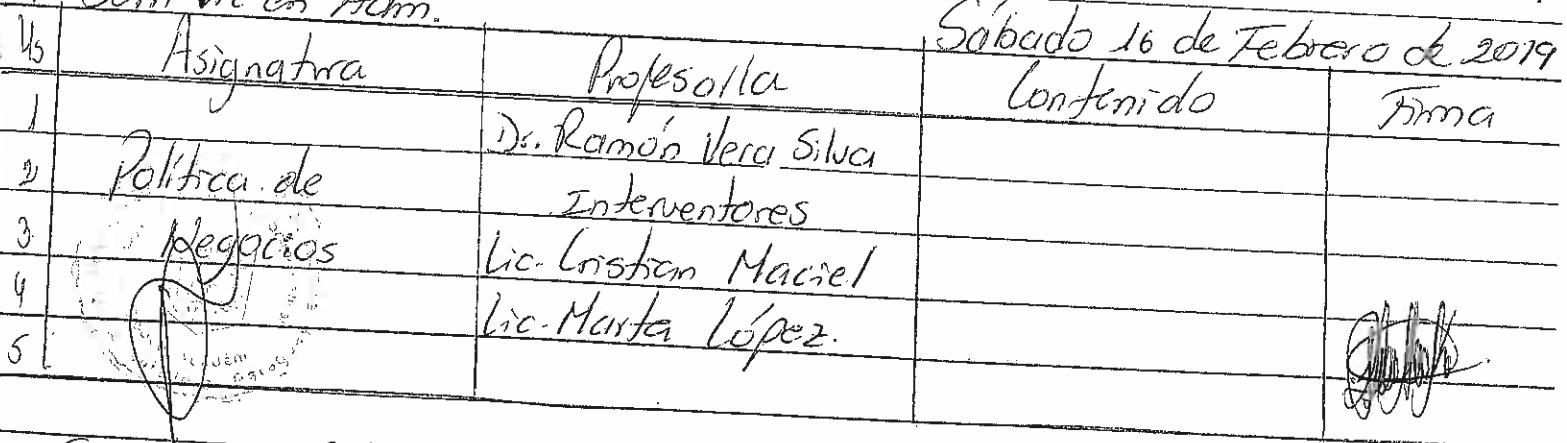 en Adm.
Sábado 16 de Febrero de 2019
Asignatura Profesor/a Contenido Firma
1 Dr. Ramón Vera Silva
2 Política de Interventores
3 Negocios Lic. Cristian Maciel
4 Lic. Marta López.
5